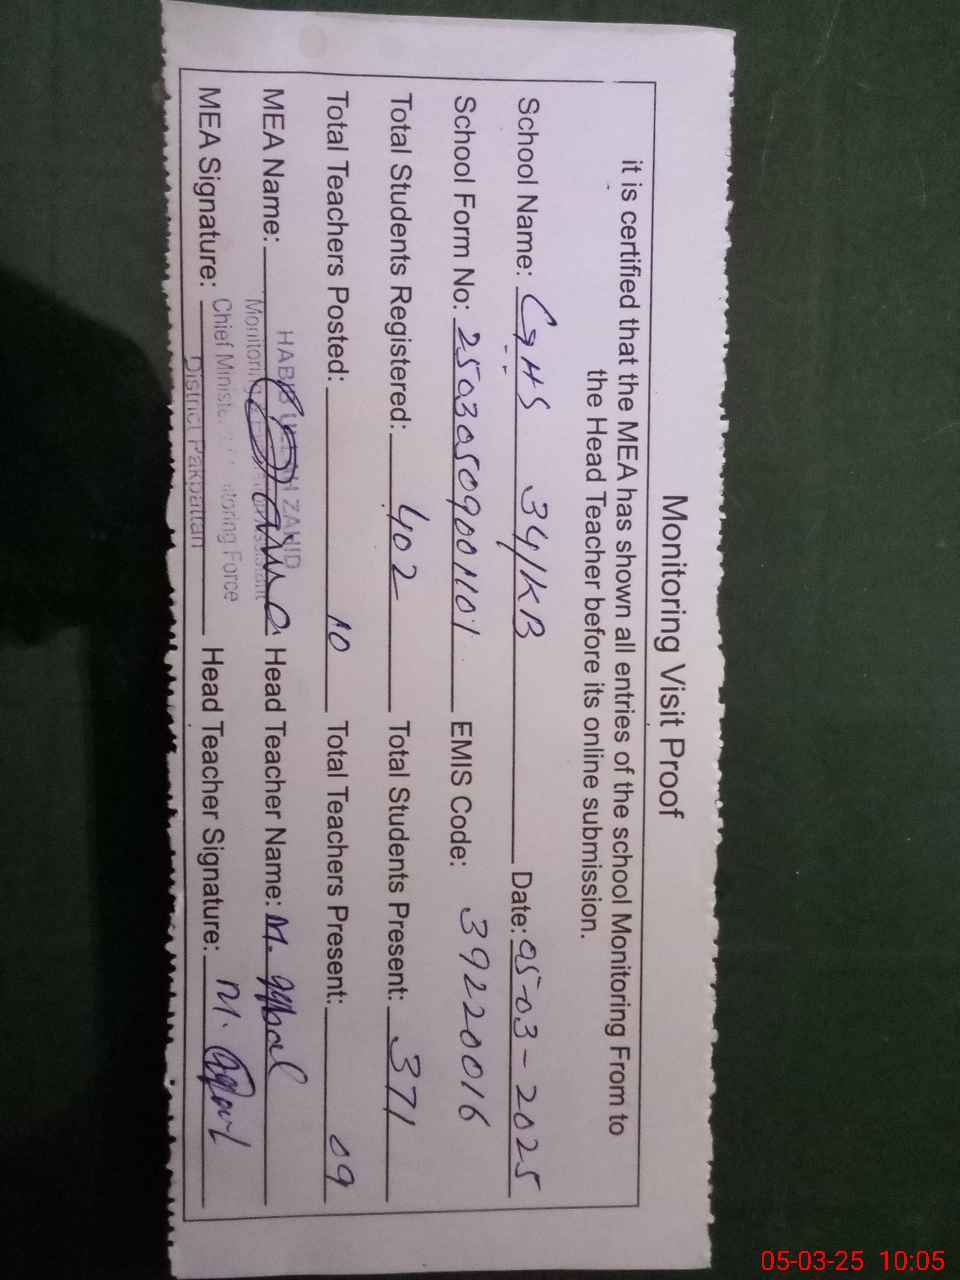 Monitoring Visit Proof
it is certified that the MEA has shown all entries of the school Monitoring From to
the Head Teacher before its online submission.
School Name: GHS 34/KB Date: 05-03-2025
School Form No: EMIS Code: 39220016
Total Students Registered: 402 Total Students Present: 371
Total Teachers Posted: 10 Total Teachers Present: 09
MEA Name: Head Teacher Name: M. Iqbal
MEA Signature: Head Teacher Signature: M. Iqbal
ZAHID
Monitoring
Chief Force
District Pakpattan
05-03-25 10:05